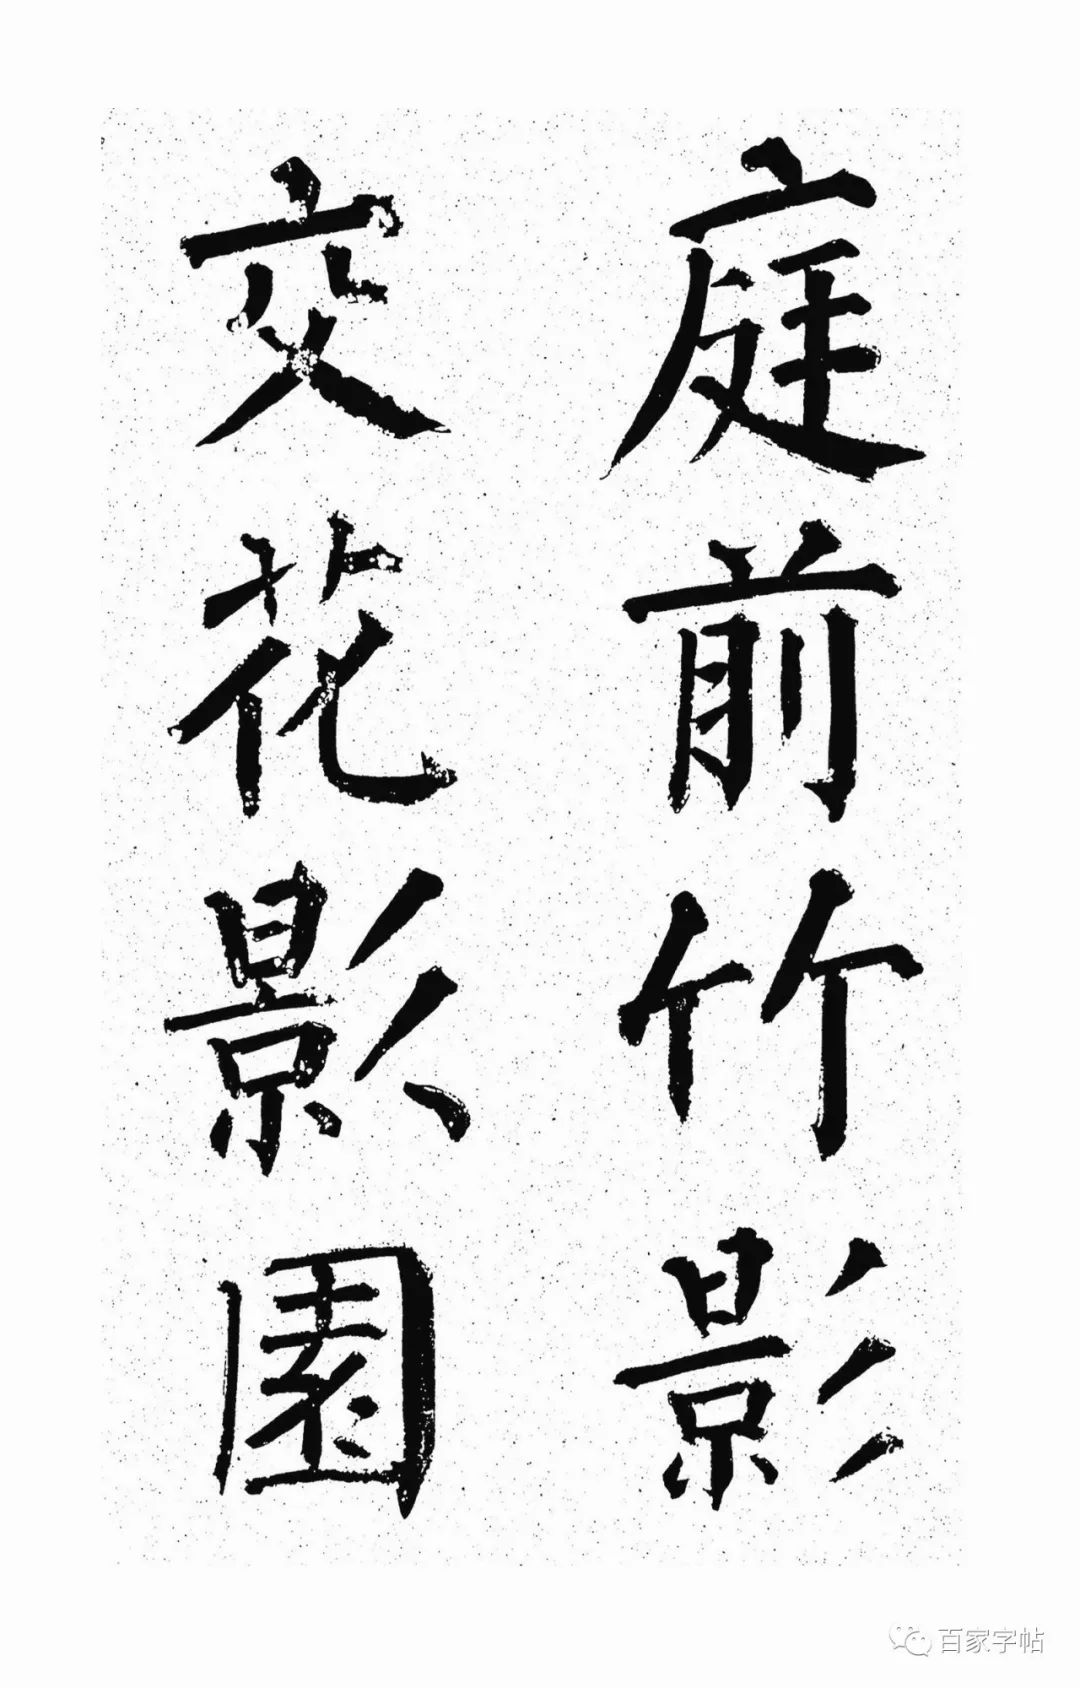 庭前竹影
交花影園
百家字帖